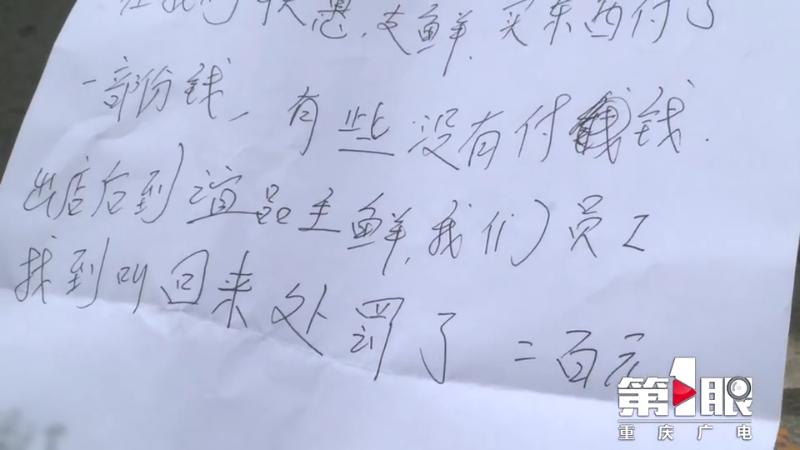 在我们惠.友鲜.买东西付了
一部份钱、有些没有付钱.
出店后到谊品生鲜,我们员工
找到叫回来处罚了二百元
第1眼
重庆广电